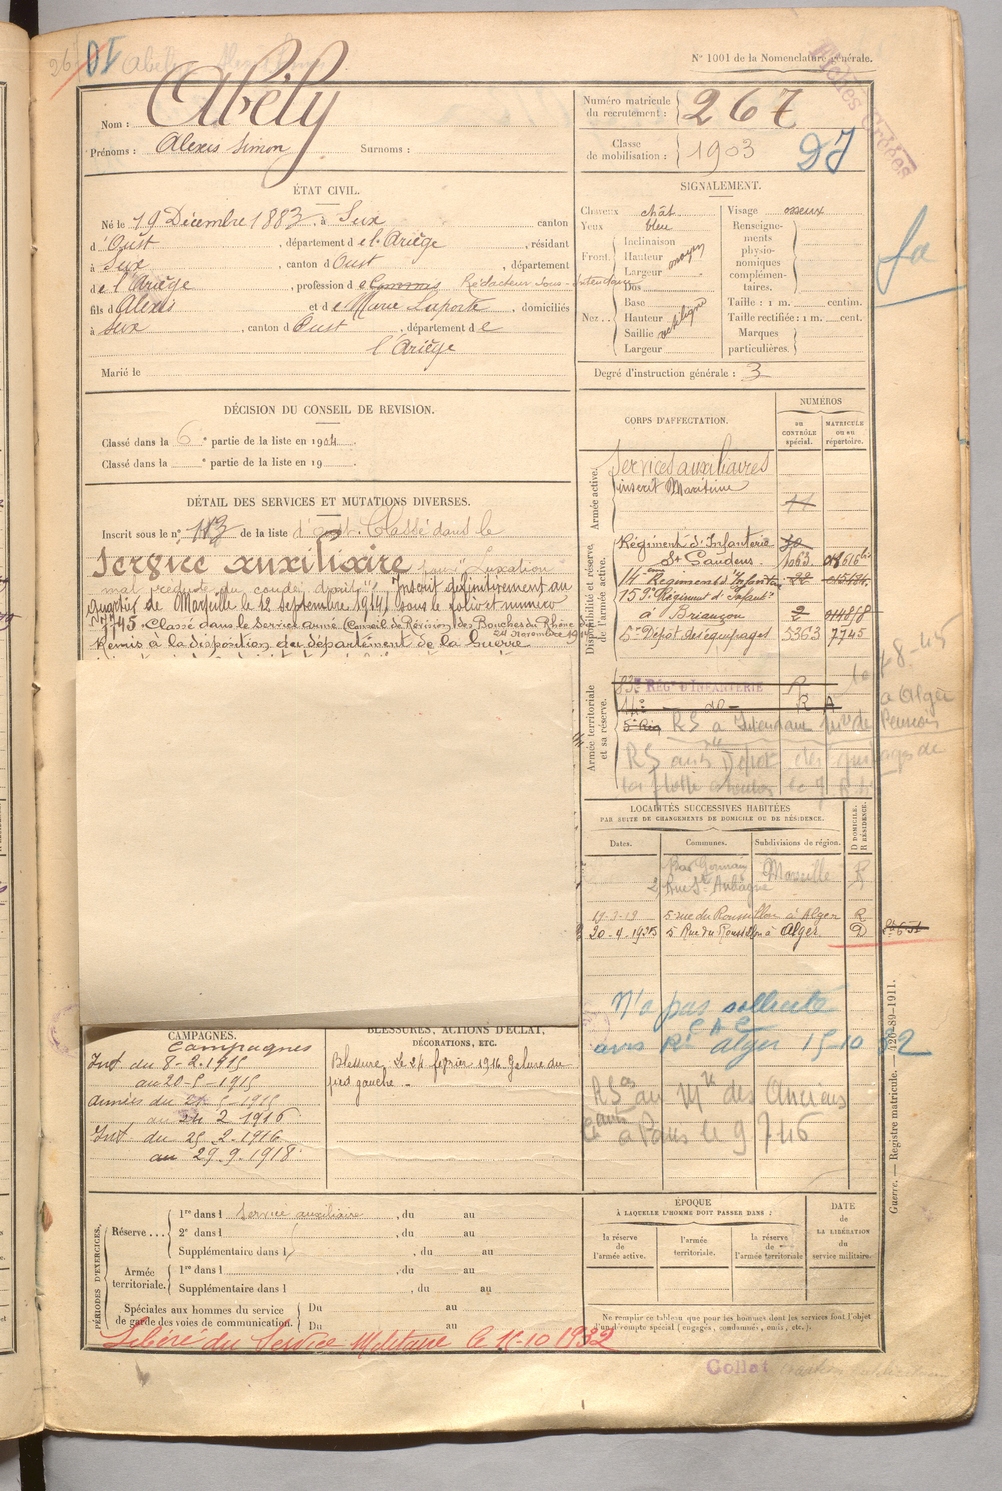 N° 1001 de la Nomenclature générale.
Nom : Abély
Prénoms : Alexis Simon Surnoms :
Numéro matricule du recrutement : 267
Classe de mobilisation : 1903
DJ
Fiches Créées
ÉTAT CIVIL.
Né le 19 Décembre 1883, à Seix canton
d'Oust, département de l'Ariège, résidant
à Seix, canton d'Oust, département
de l'Ariège, profession de Commis Rédacteur Sous-Intendance
fils d'Alexis et de Marie Laporte, domiciliés
à Seix, canton d'Oust, département de
l'Ariège
Marié le
SIGNALEMENT.
Cheveux chât.
Yeux bleu
Front Inclinaison
Hauteur moyen
Largeur
Nez Dos
Base
Hauteur
Saillie rectiligne
Largeur
Visage osseux
Renseignements physionomiques complémentaires.
Taille : 1 m. centim.
Taille rectifiée : 1 m. cent.
Marques particulières.
Degré d'instruction générale : 3
DÉCISION DU CONSEIL DE RÉVISION.
Classé dans la 6e partie de la liste en 1904.
Classé dans la e partie de la liste en 19
DÉTAIL DES SERVICES ET MUTATIONS DIVERSES.
Inscrit sous le n° 113 de la liste d'Oust. Classé dans le
Service auxiliaire pour : Luxation
mal réduite du coude droit. Inscrit définitivement au
quartier de Marseille le 12 Septembre 1914 sous le folio et numéro
7745. Classé dans le Service Armé (Conseil de Révision des Bouches du Rhône du
24 Novembre 1914
Remis à la disposition du département de la Guerre
CORPS D'AFFECTATION.
NUMÉROS
au contrôle spécial.
matricule ou au répertoire.
Armée active.
Services auxiliaires
inscrit Maritime
11
Disponibilité et réserve de l'armée active.
Régiment d'Infanterie
St Gaudens
14eme Régiment d'Infanterie
159e Régiment d'Infant.
à Briançon
5e Dépôt des équipages 5363 7745
Armée territoriale et sa réserve.
83e RÉGt D'INFANTERIE
14e -do- R A
LOCALITÉS SUCCESSIVES HABITÉES
PAR SUITE DE CHANGEMENTS DE DOMICILE OU DE RÉSIDENCE.
Dates. Communes. Subdivisions de région. D DOMICILE. R RÉSIDENCE.
Marseille R
2 Rue St Aubagne
17-3-19 5 rue du Roussillon à Alger R
5 Rue du Roussillon à Alger. D
n'a pas sollicité
avis Rt Alger 15-10 32
RS au Mre des Anciens
à Paris le 9 7 46
CAMPAGNES.
Campagnes
Int du 8-2-1915
au 20-5-1915
Armées du 21-5-1915
au 24 2 1916
Int du 25.2.1916
au 29.9.1918
BLESSURES, ACTIONS D'ÉCLAT, DÉCORATIONS, ETC.
Blessure. Le 24 février 1916 Gelure du
pied gauche.
PÉRIODES D'EXERCICES.
Réserve... 1re dans l Service auxiliaire, du au
2e dans l , du au
Supplémentaire dans l , du au
Armée territoriale. 1re dans l , du au
Supplémentaire dans l , du au
Spéciales aux hommes du service de garde des voies de communication. Du au
Du au
Libéré du Service Militaire le 15-10 1932
ÉPOQUE
À LAQUELLE L'HOMME DOIT PASSER DANS :
la réserve de l'armée active.
l'armée territoriale.
la réserve de l'armée territoriale
DATE de LA LIBÉRATION du service militaire.
Ne remplir ce tableau que pour les hommes dont les services font l'objet
d'un décompte spécial (engagés, condamnés, omis, etc.).
Guerre. — Registre matricule. — 426-89-1911.
Collat